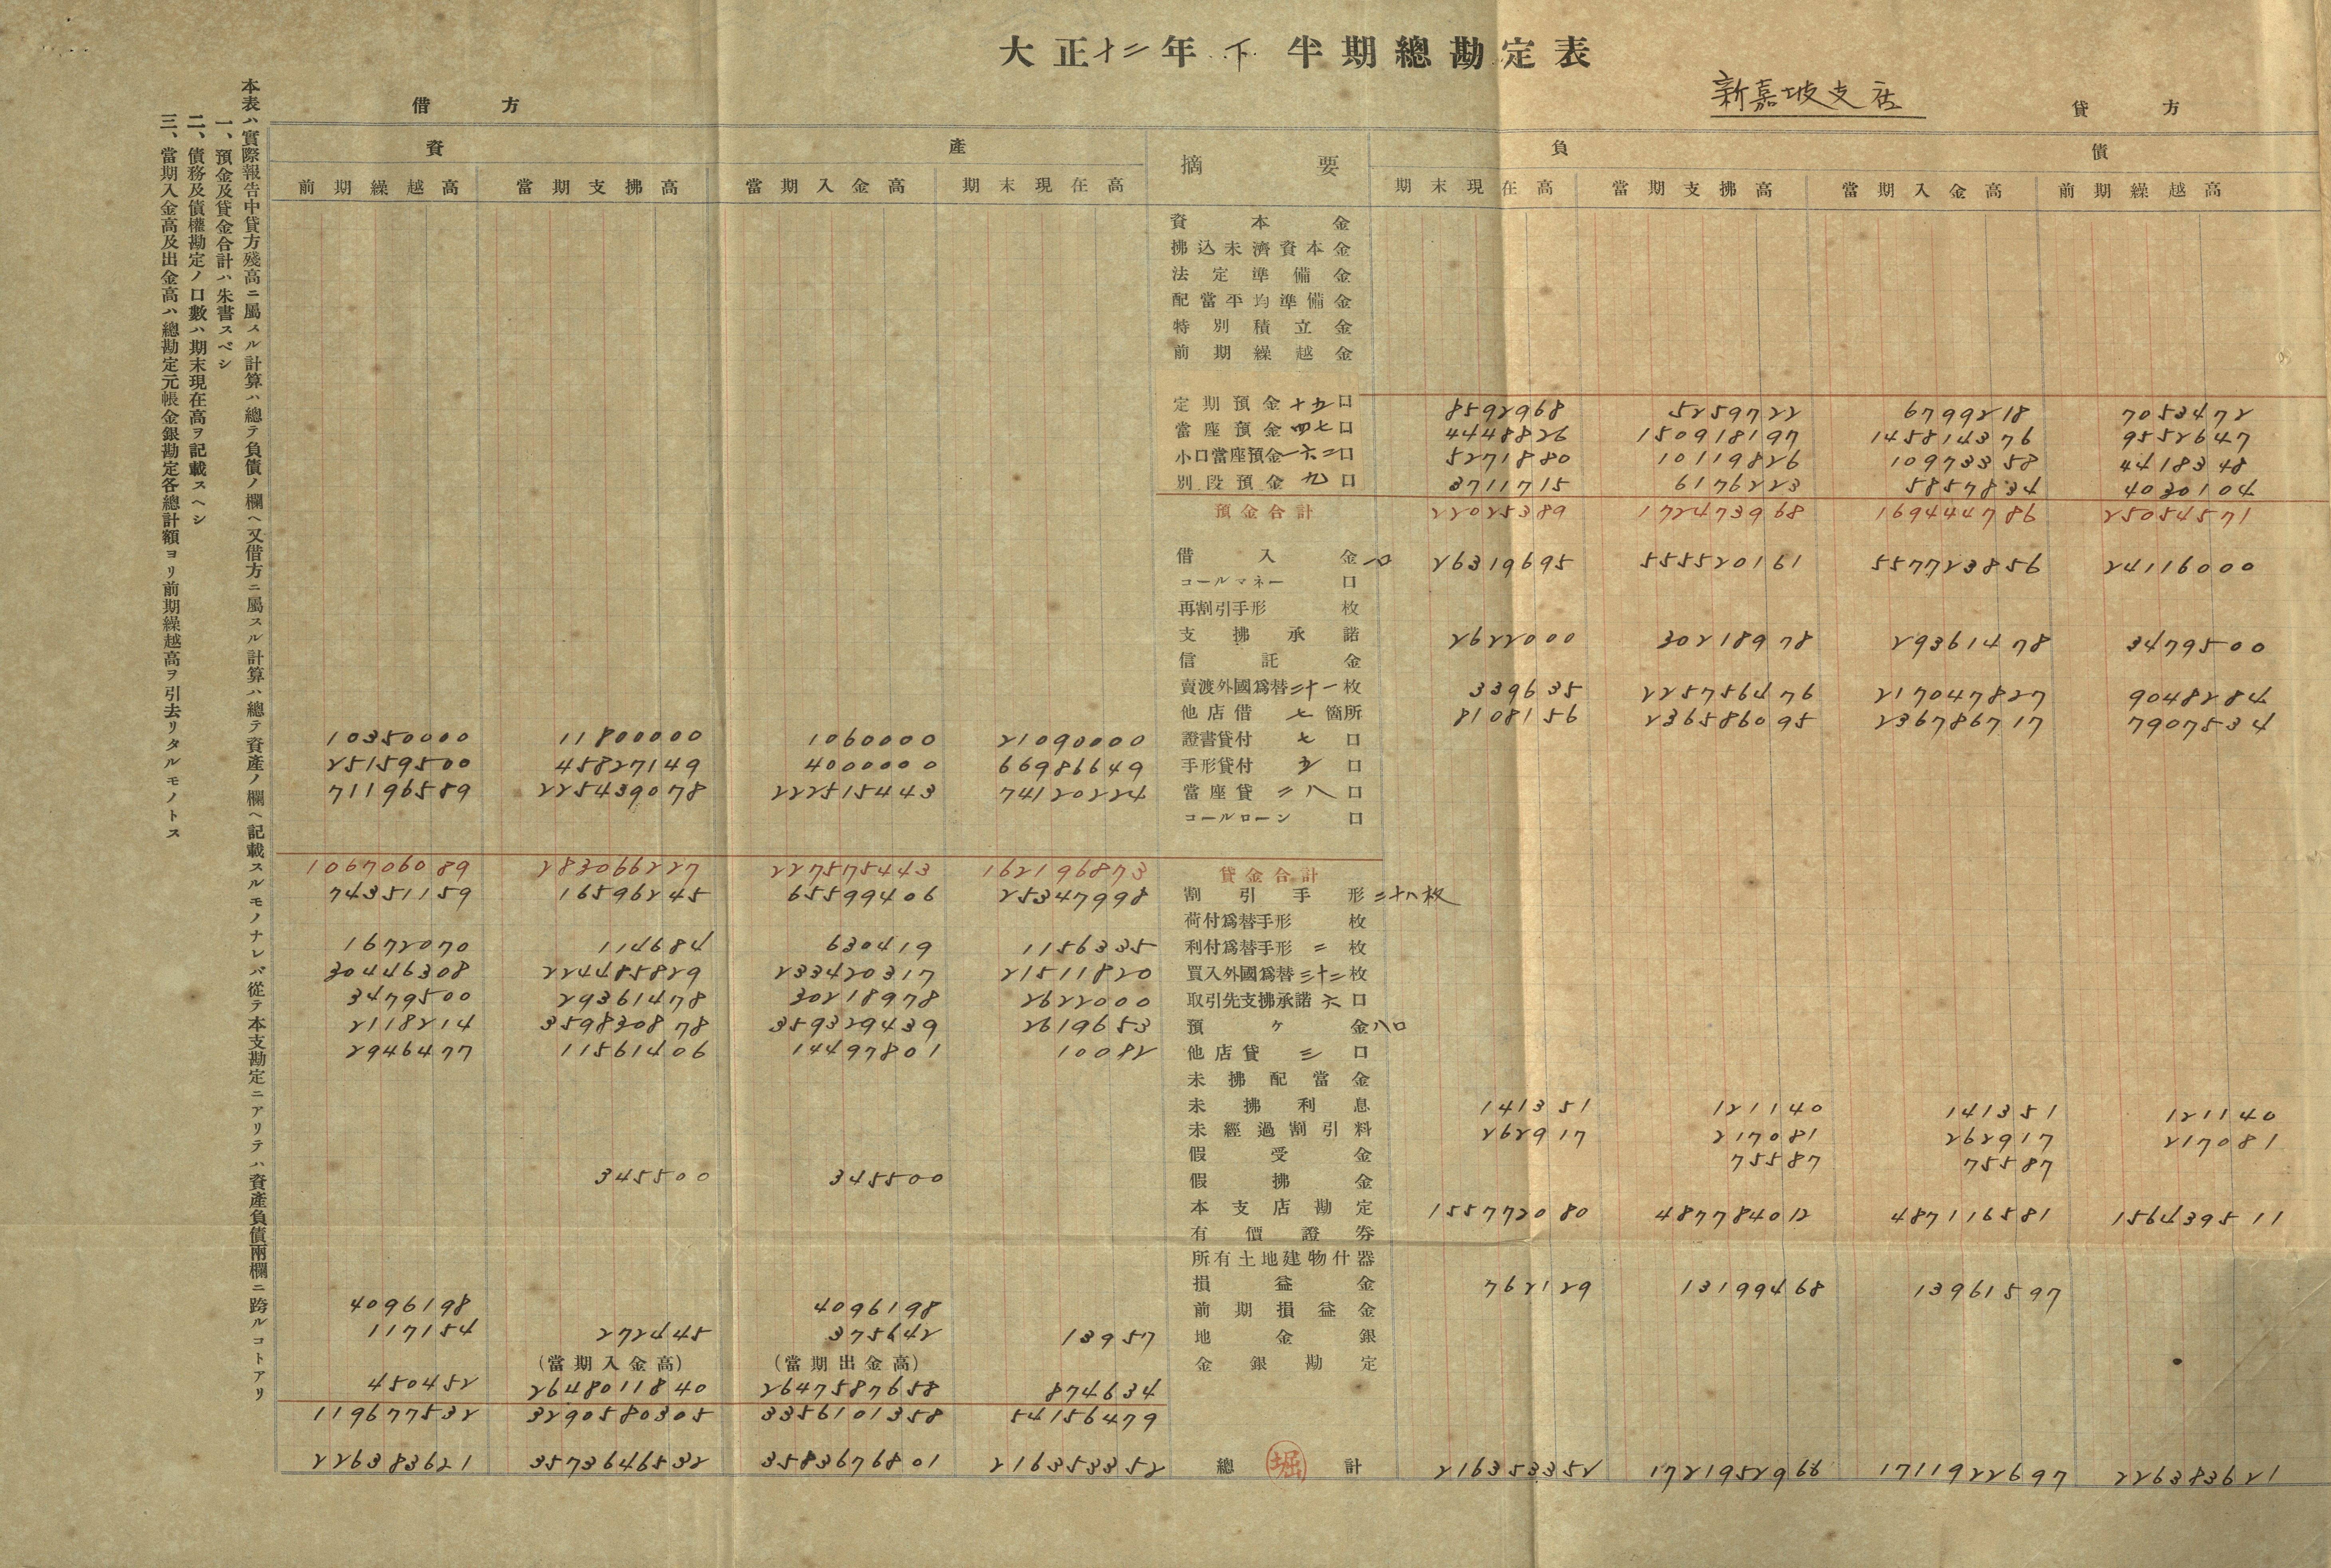 大正十二年下半期總勘定表
新嘉坡支店
借方 貸方
資產 摘要 負債
前期繰越高 當期支拂高 當期入金高 期末現在高 期末現在高 當期支拂高 當期入金高 前期繰越高
資本金
拂込未濟資本金
法定準備金
配當平均準備金
特別積立金
前期繰越金
定期預金十五口 8592968 5259722 6799218 7053472
當座預金四七口 4448826 150918197 145814376 9552647
小口當座預金一六二口 5271880 10119826 10973358 4418348
別段預金九口 3711715 6176223 5857834 4030104
預金合計 22025389 172473968 169444786 25054571
借入金一口 26319695 555520161 557723856 24116000
コールマネー口
再割引手形枚
支拂承諾 2622000 30218978 29361478 3479500
信託金
賣渡外國爲替二十一枚 339635 225756476 217047827 9048284
他店借七箇所 8108156 236586095 236786717 7907534
10350000 11800000 1060000 21090000 證書貸付七口
25159500 45827149 4000000 66986649 手形貸付五口
71196589 225439078 222515443 74120224 當座貸二八口
コールローン口
106706089 283066227 227575443 162196873 貸金合計
74351159 16596245 65599406 25347998 割引手形二十八枚
荷付爲替手形枚
1672070 114684 630419 1156335 利付爲替手形二枚
30446308 224485829 233420317 21511820 買入外國爲替三十二枚
3479500 29361478 30218978 2622000 取引先支拂承諾六口
2118214 359830878 359329439 2619653 預ケ金八口
2946477 11561406 14497801 10082 他店貸三口
未拂配當金
未拂利息 141351 121140 141351 121140
未經過割引料 262917 217081 262917 217081
假受金 75587 75587
345500 345500 假拂金
本支店勘定 155772080 487784012 487116581 156439511
有價證券
所有土地建物什器
損益金 762129 13199468 13961597
4096198 4096198 前期損益金
117154 272445 375642 13957 地金銀
(當期入金高) (當期出金高) 金銀勘定
450452 2648011840 2647587658 874634
119677532 3290580305 3356101358 54156479
226383621 3573646532 3583676801 216353352 總堀計 216353352 1721952966 1711922697 226383621
本表ハ實際報告中貸方殘高ニ屬スル計算ハ總テ負債ノ欄ヘ又借方ニ屬スル計算ハ總テ資產ノ欄ヘ記載スルモノナレバ從テ本支勘定ニアリテハ資產負債兩欄ニ跨ルコトアリ
一、預金及貸金合計ハ朱書スベシ
二、債務及債權勘定ノ口數ハ期末現在高ヲ記載スヘシ
三、當期入金高及出金高ハ總勘定元帳金銀勘定各總計額ヨリ前期繰越高ヲ引去リタルモノトス